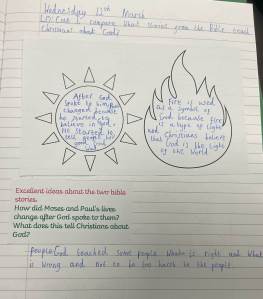 Wednesday 11th March
LO: Can I compare what stories from the Bible teach
Christians about God?
After God
spoke to him Paul
changed because
he started to
believe in God.
He started to
tell people
good
Fire is used
as a symbol of
God because fire
is a type of light
and Christians believe
that God is the light
of the world
Excellent ideas about the two bible
stories.
How did Moses and Paul's lives
change after God spoke to them?
What does this tell Christians about
God?
people God teached some people whats is right and what
is wrong and not to be too harsh to the people.